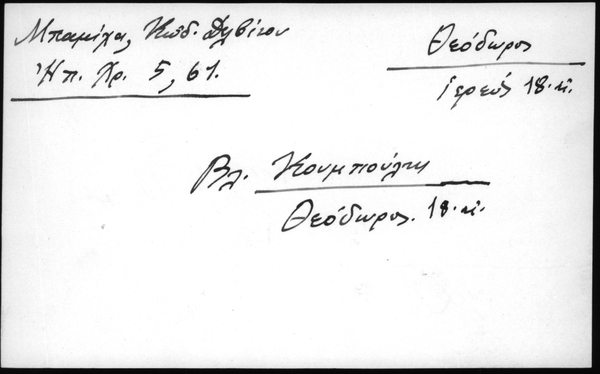 Μπαμίχα, Κωδ. Δελβίνου
Ἠπ. Χρ. 5, 61.
Θεόδωρος
ἱερεύς 18. αἰ.
Βλ. Κουμπούλης
Θεόδωρος. 18. αἰ.